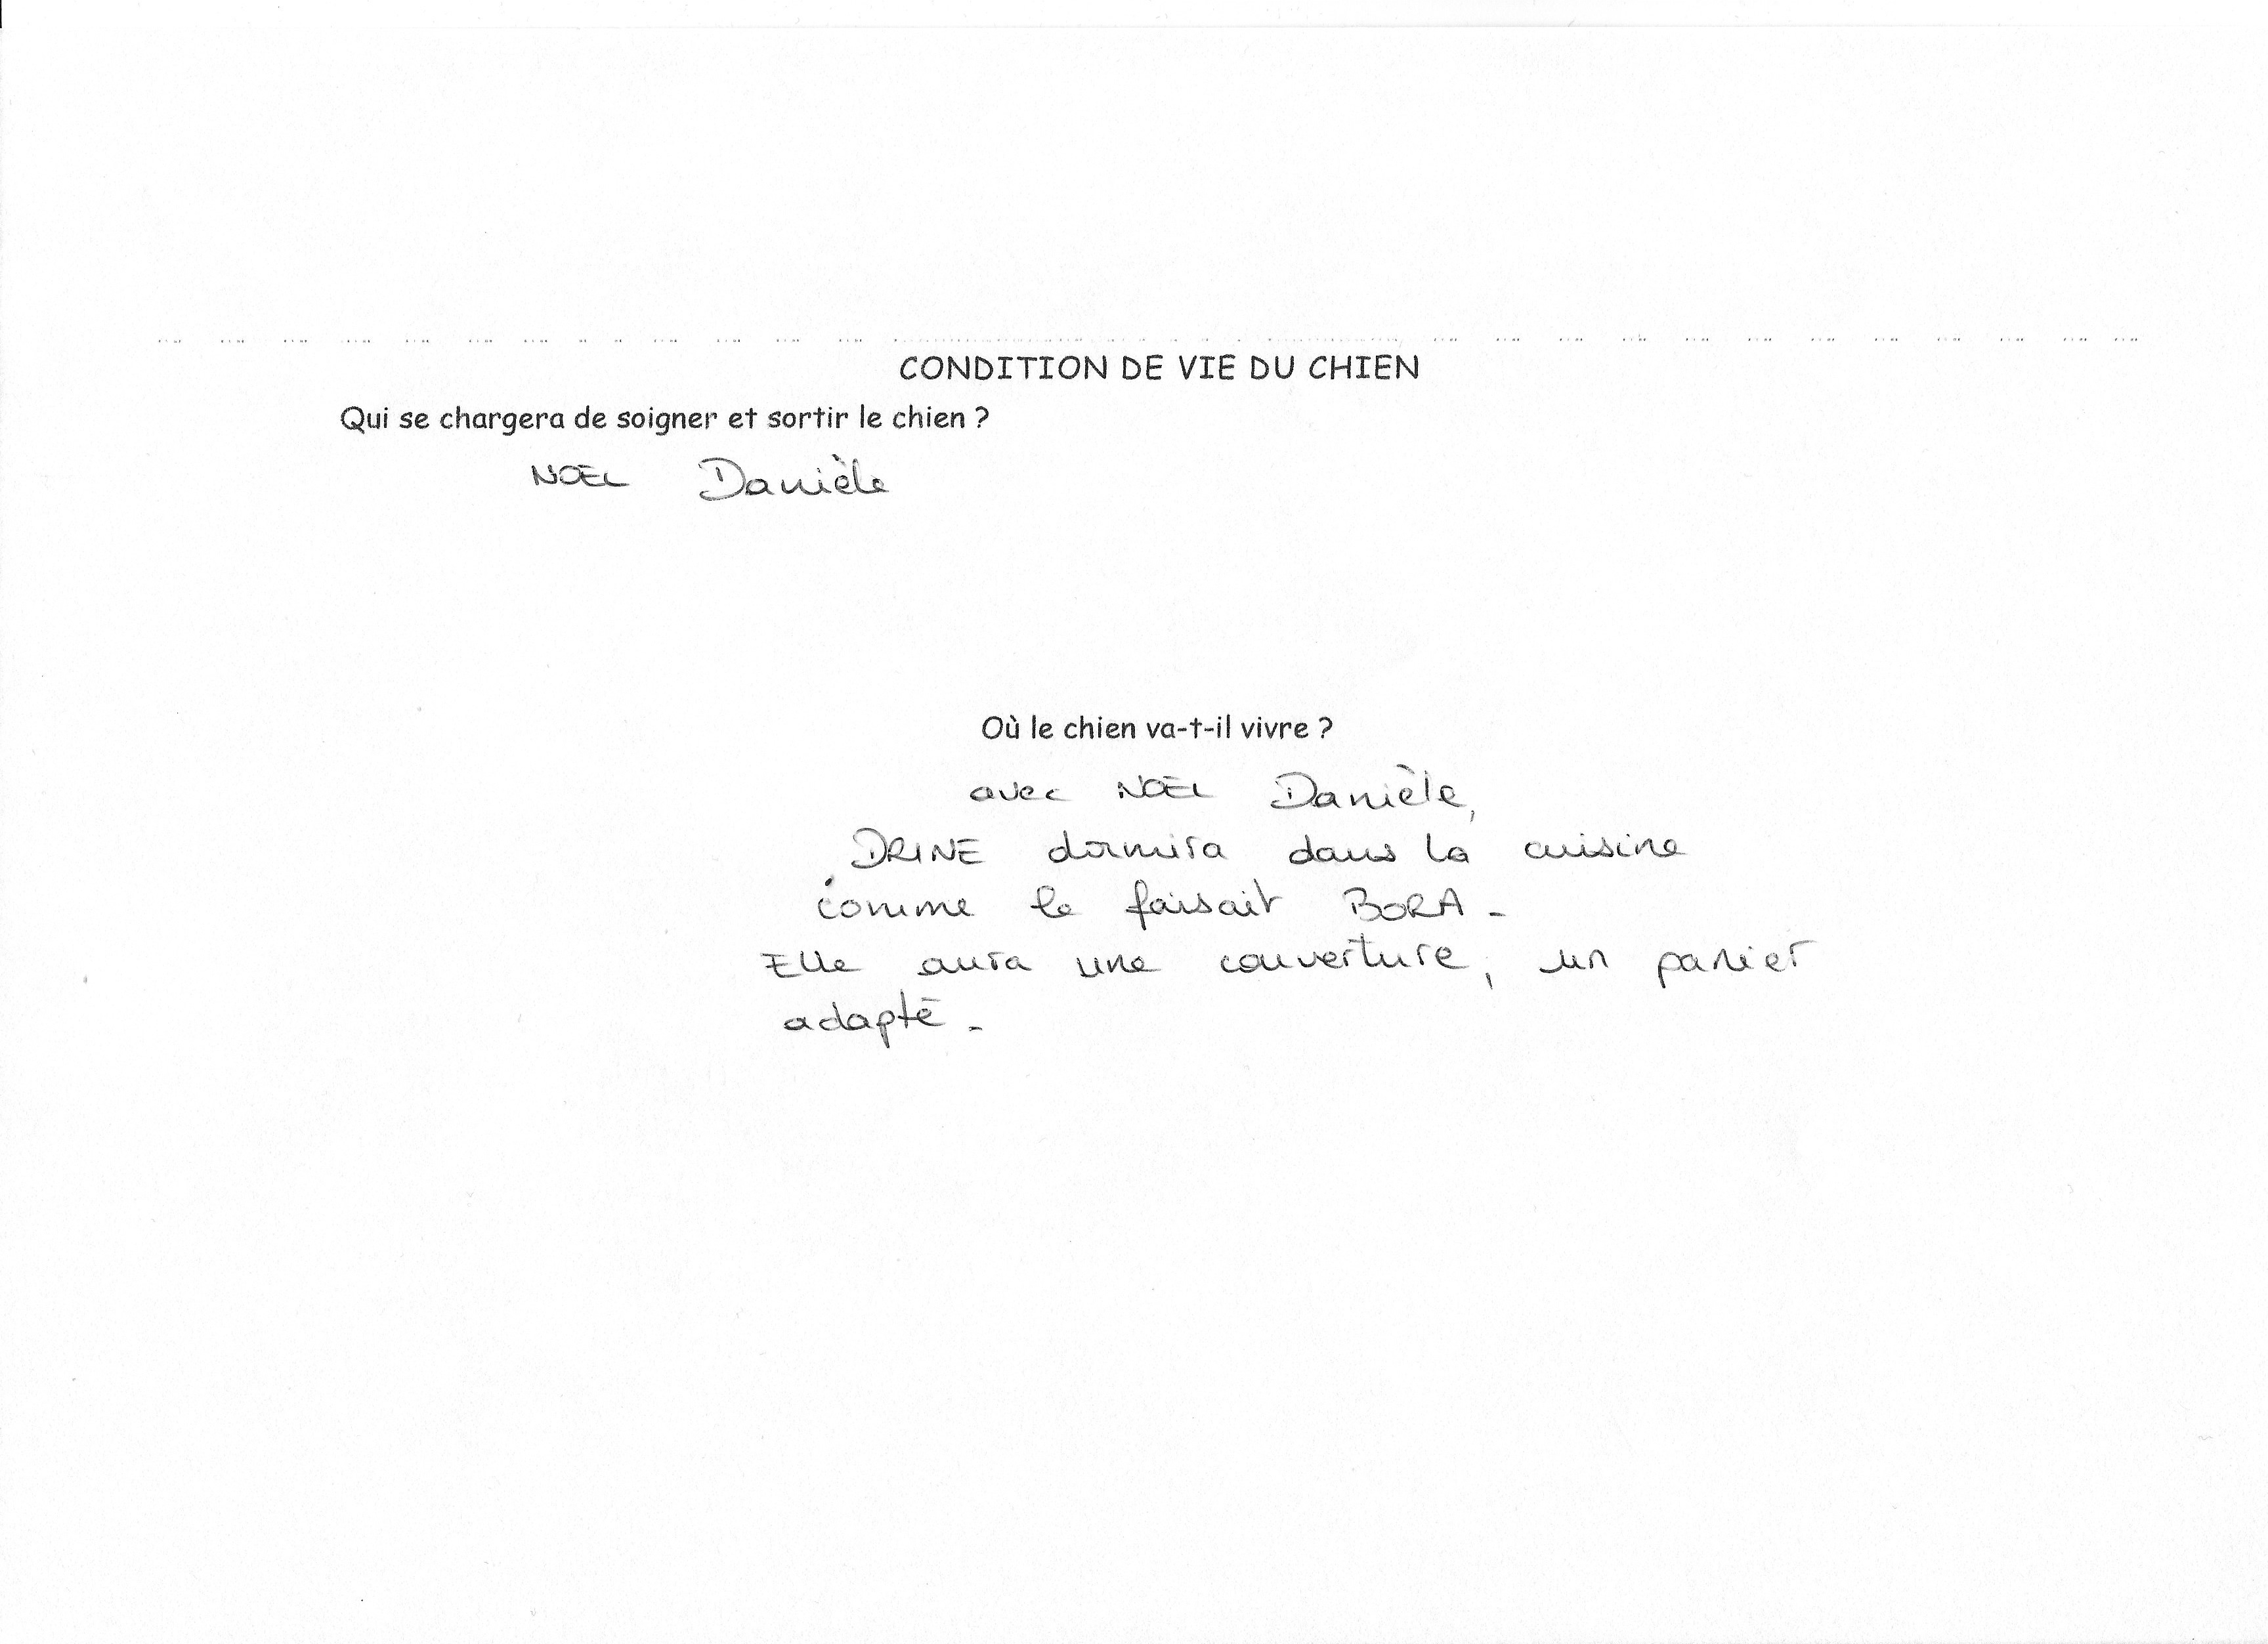 CONDITION DE VIE DU CHIEN
Qui se chargera de soigner et sortir le chien ?
NOËL Danièle
Où le chien va-t-il vivre ?
avec NOËL Danièle,
DRINE dormira dans la cuisine
comme le faisait BORA -
Elle aura une couverture, un panier
adapté -